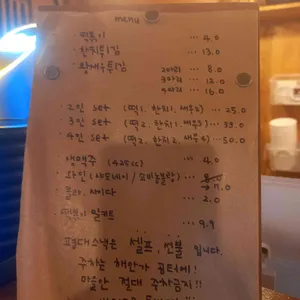 menu
· 떡볶이 ··· 4.0
· 한치튀김 ··· 13.0
· 왕새우튀김 2마리 ··· 8.0
3마리 ··· 12.0
4마리 ··· 16.0
· 2인 set (떡1. 한치1. 새우2) ··· 25.0
· 3인 set (떡2. 한치1. 새우3) ··· 33.0
· 4인 set (떡2. 한치2 새우4) ··· 50.0
생맥주 (425cc) ··· 4.0
와인 (샤도네이 / 쇼비뇽블랑) 7.0
콜라. 사이다 ··· 2.0
떡볶이 밀키트 ··· 9.9
평대스낵은 셀프, 선불 입니다.
주차는 해안가 공터에!
마을안 절대 주차금지!!